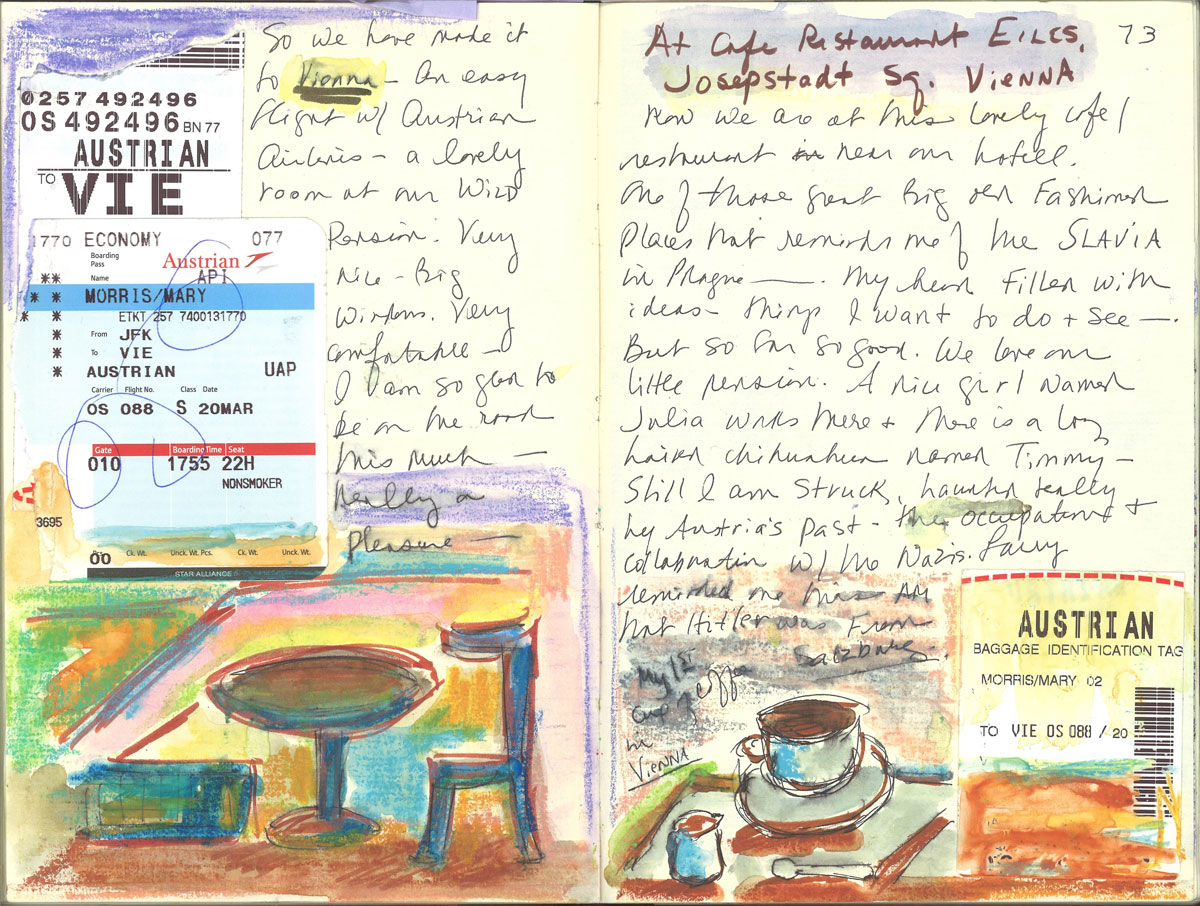 So we have made it
to Vienna - An easy
flight w/ Austrian
Airlines - a lovely
room at our Wild
Pension. Very
nice - Big
Windows. Very
comfortable -
I am so glad to
be on the road
this much -
Really a
pleasure -
0257 492496
OS 492496 BN 77
AUSTRIAN
TO VIE
1770 ECONOMY 077
Boarding
Pass
Austrian
API
** Name
* * MORRIS/MARY
* * ETKT 257 7400131770
* From JFK
* To VIE
* AUSTRIAN UAP
Carrier Flight No. Class Date
OS 088 S 20MAR
Gate Boarding Time Seat
010 1755 22H
NONSMOKER
3695
Pcs. Ck. Wt. Unck. Wt. Pcs. Ck. Wt. Unck. Wt.
00
STAR ALLIANCE
73
At Cafe Restaurant EILES,
Josepstadt Sq. Vienna
Now we are at this lovely cafe/
restaurant near our hotell.
One of those great big old fashioned
places that reminds me of the SLAVIA
in Prague -. My head filled with
ideas - things I want to do + see -.
But so far so good. We love our
little pension. A nice girl named
Julia works there + there is a long
haired chihuahua named Timmy -
Still I am struck, haunted really
by Austria's past - the occupation +
collaboration w/ the Nazis. Larry
reminded me this AM
that Hitler was from
Salzburg.
My 1st
cup of coffee
in
Vienna
AUSTRIAN
BAGGAGE IDENTIFICATION TAG
MORRIS/MARY 02
TO VIE OS 088 / 20